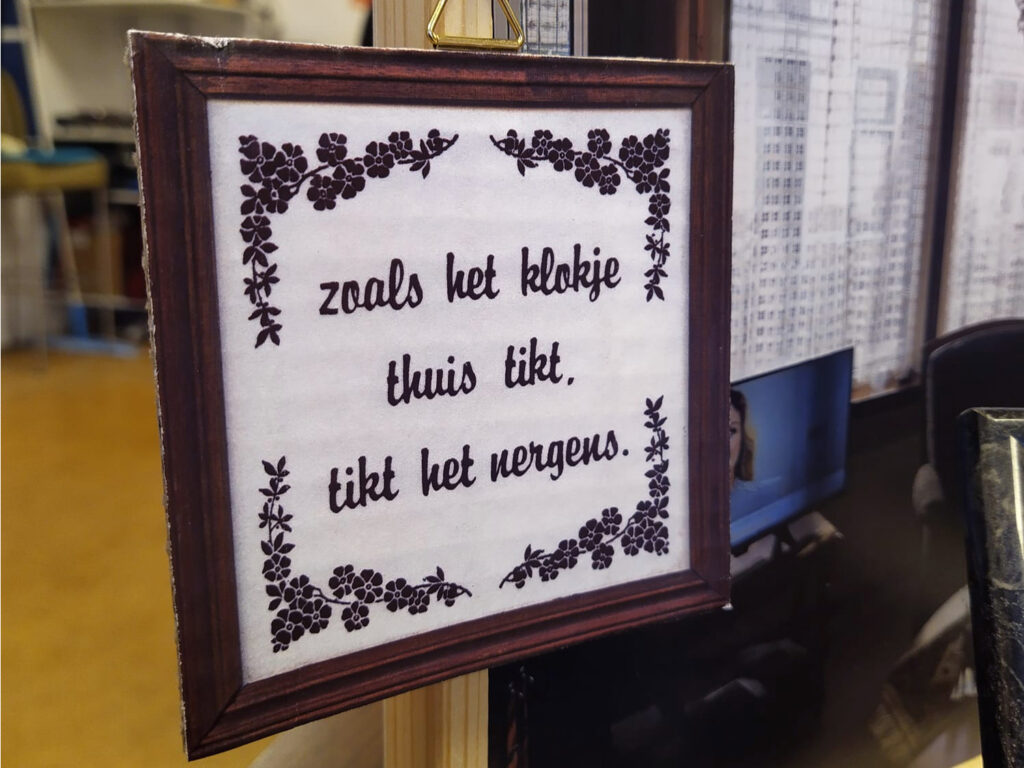 zoals het klokje
thuis tikt,
tikt het nergens.